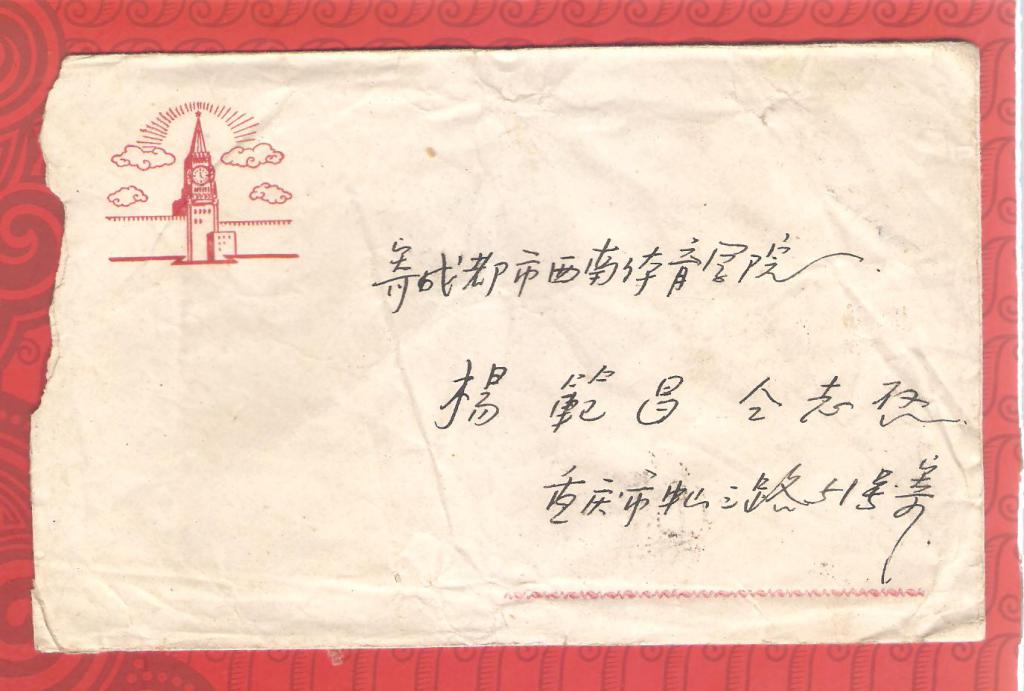 寄成都市西南体育学院
楊範昌仝志啓
重庆市中山三路51号寄